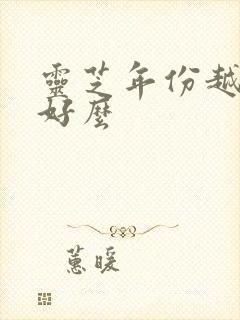 靈芝年份越
好麼
蕙暖